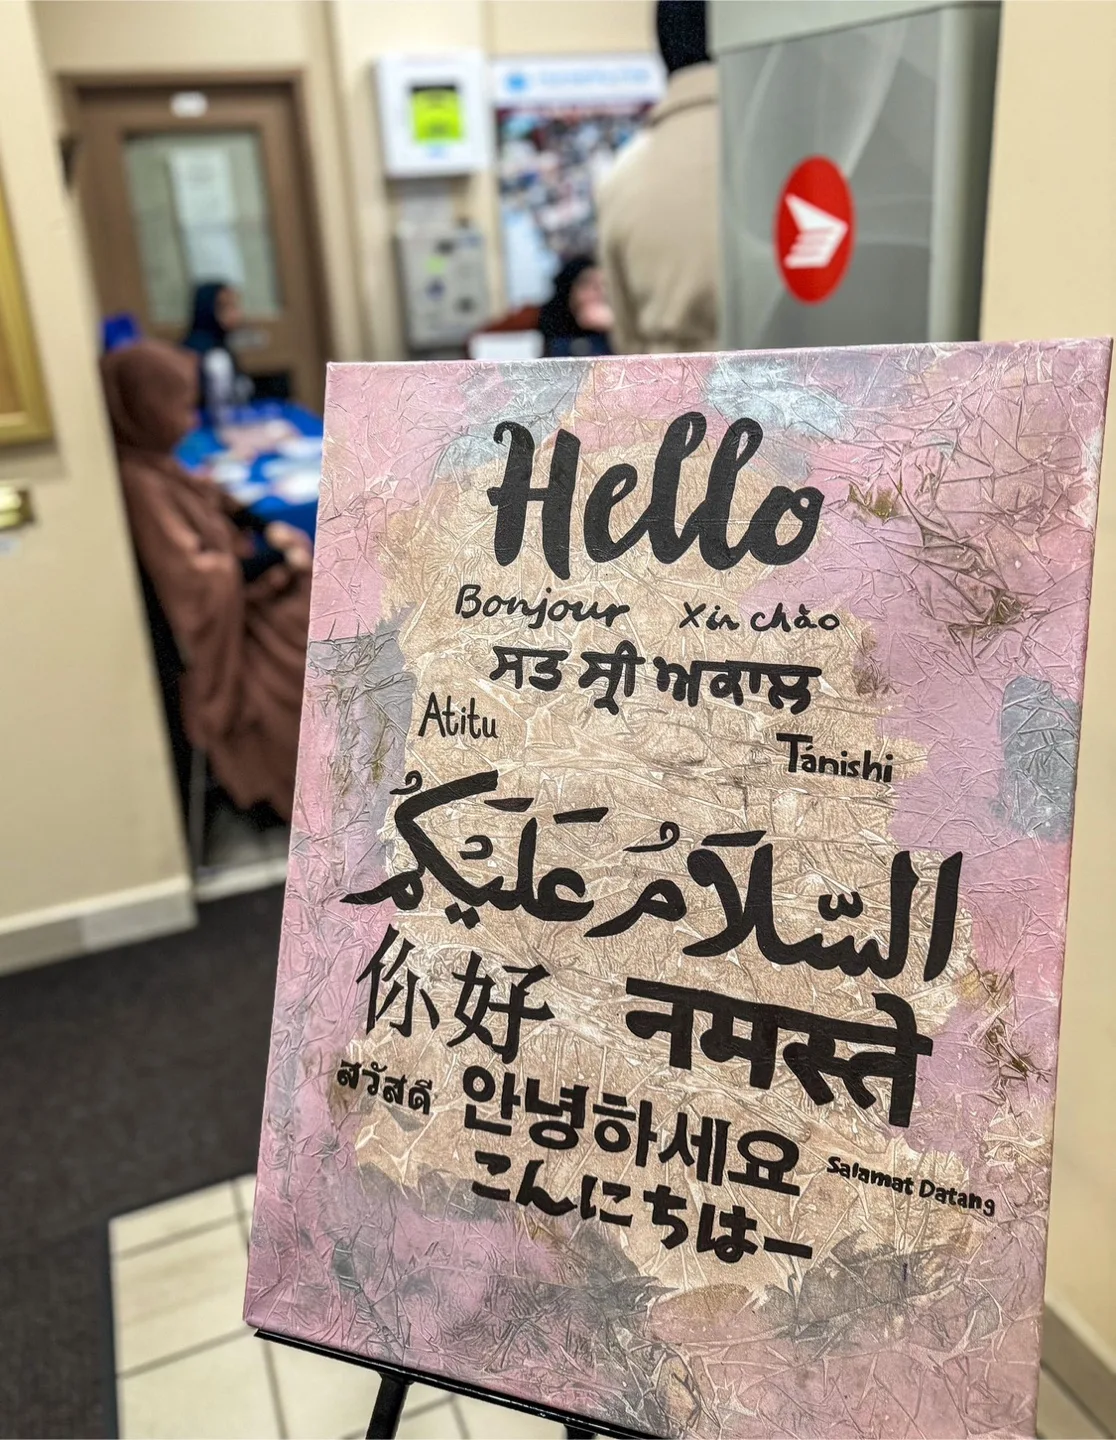 Hello
Bonjour Xin chào
ਸਤ ਸ੍ਰੀ ਅਕਾਲ
Atitu
Tánishi
السّلَامُ عَلَيْكُم
你好 नमस्ते
สวัสดี
안녕하세요
Salamat Datang
こんにちはー